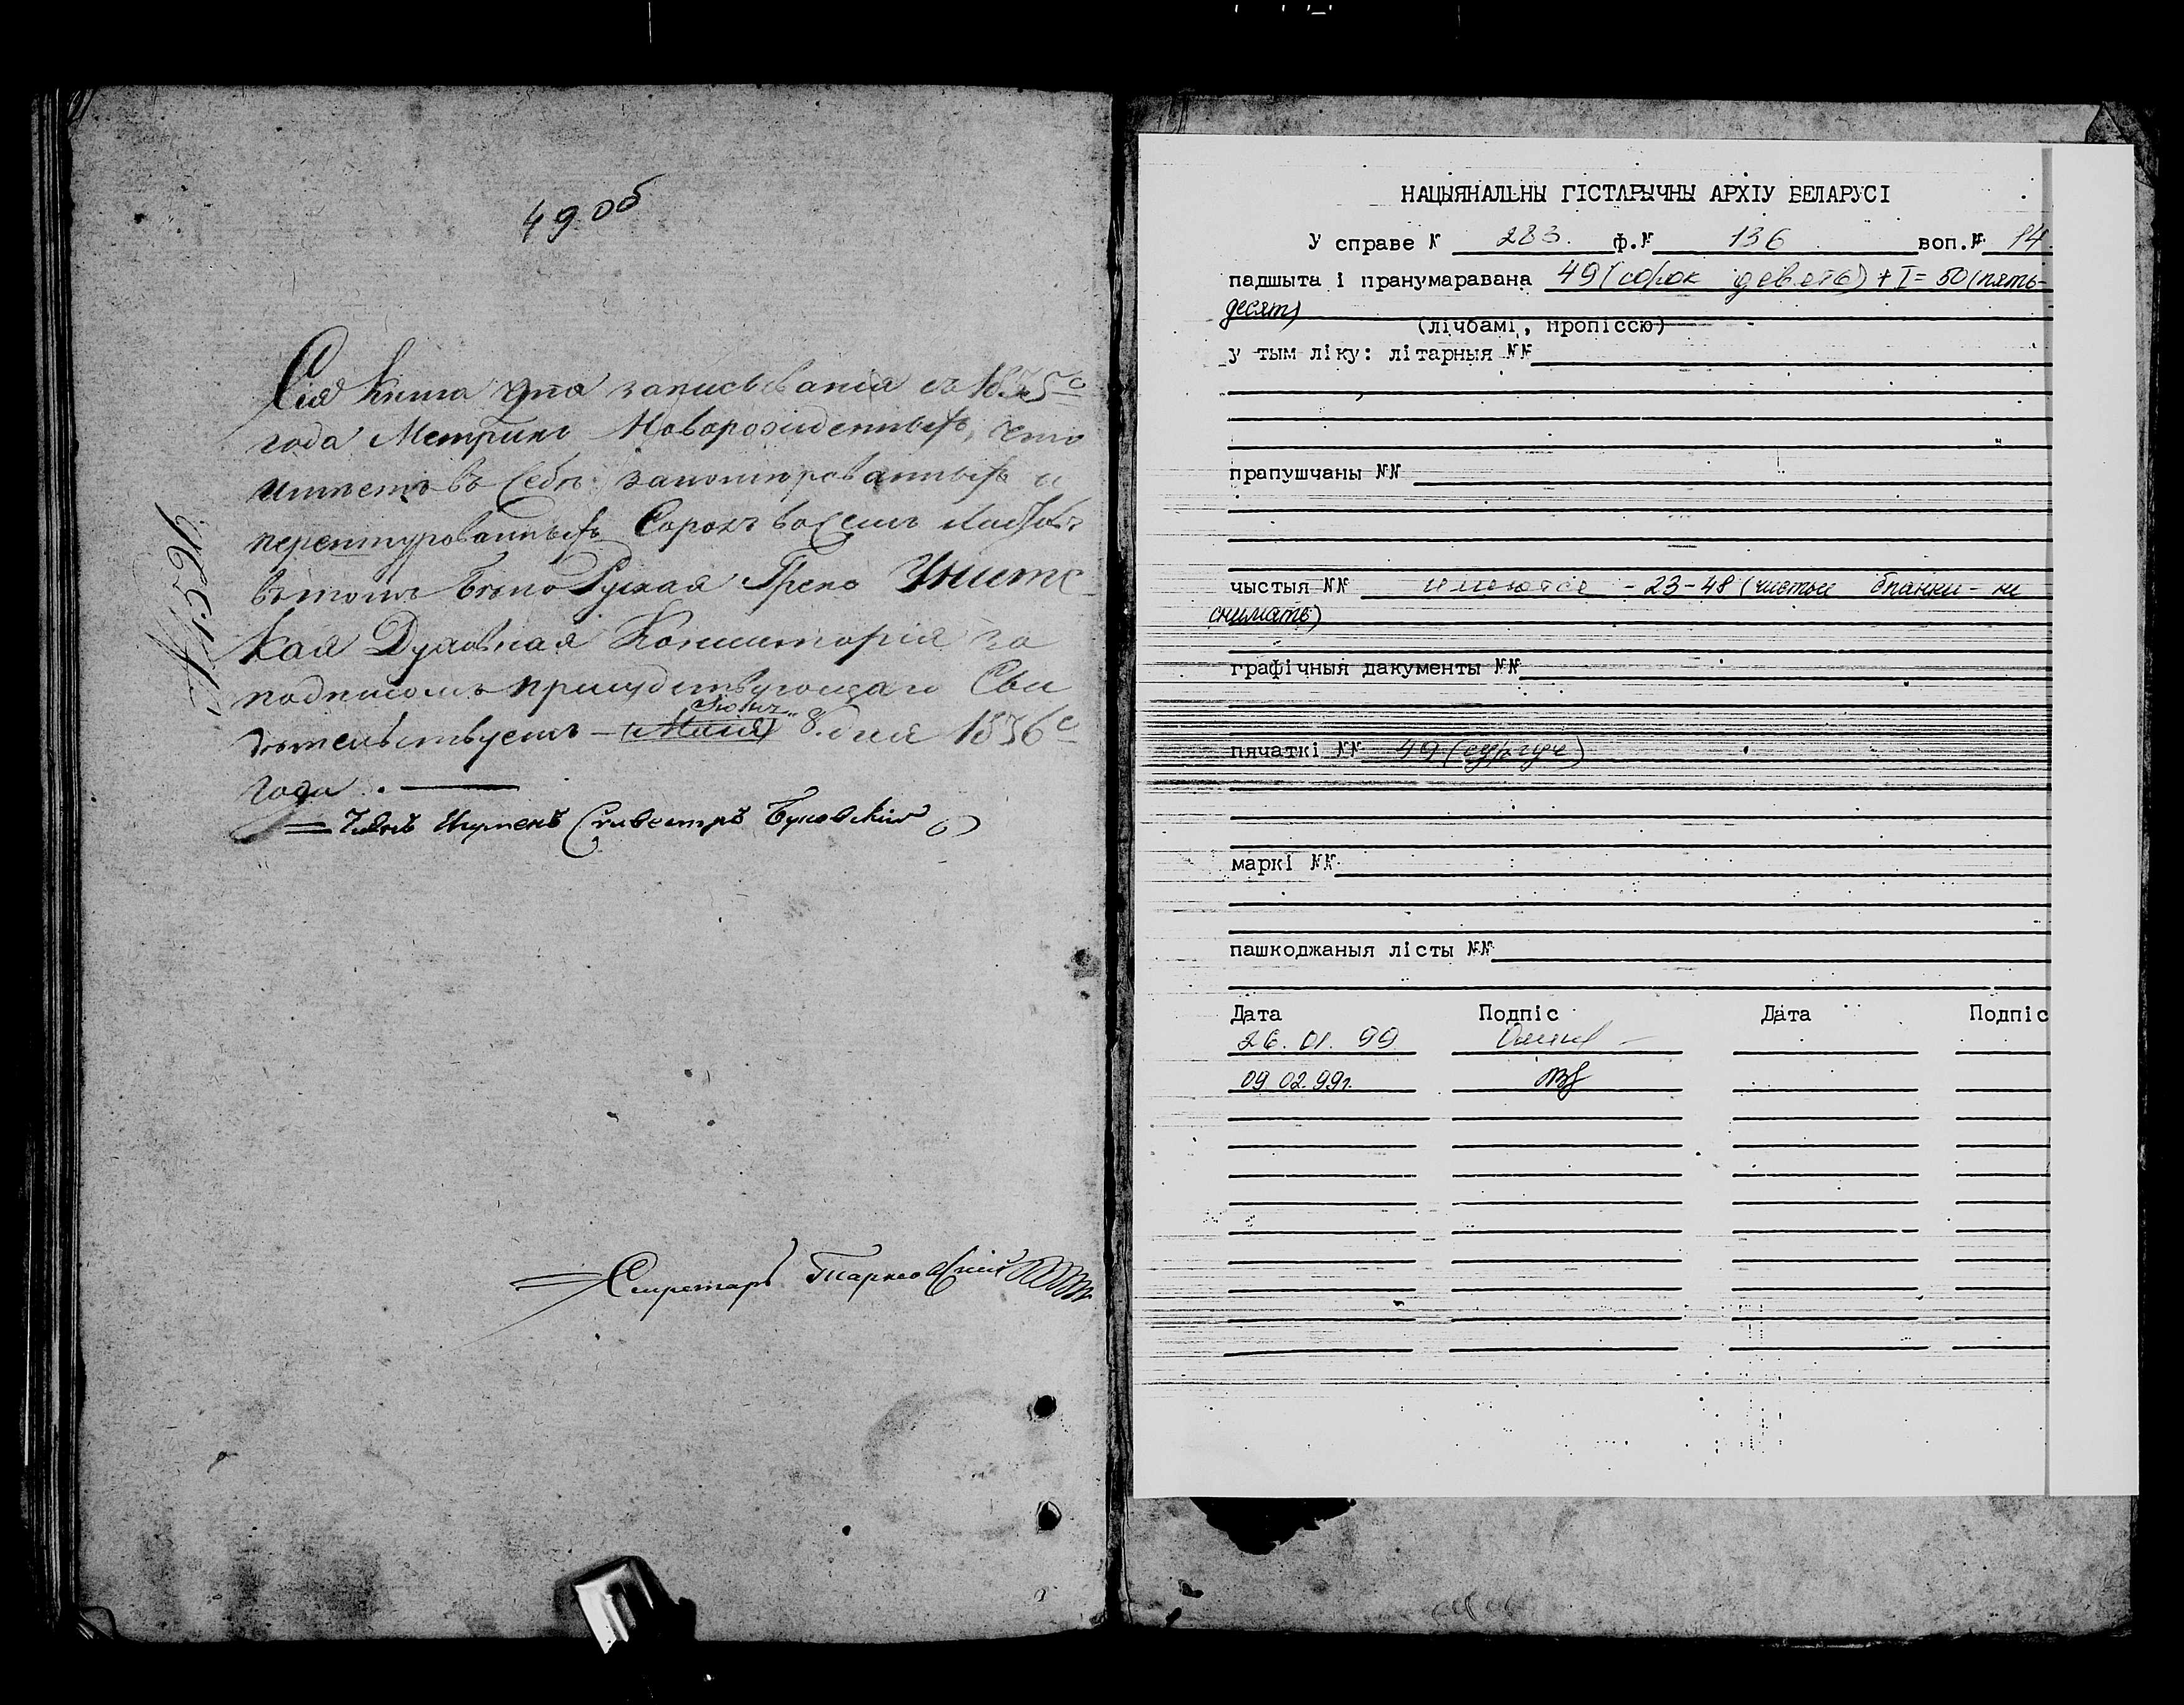 49 об
Сія Книга для записыванія съ 1835го
года Метрикъ Новорожденныхъ, что
имѣетъ въ Себѣ занотированныхъ и
перешнурованныхъ Сорокъ восемь листовъ
въ томъ Бѣло Руская Греко Унитс
кая Духовная Консисторія за
подписомъ присудствующаго Сви
дѣтельствуетъ – Маія 8. дня 1836го
года. —
Игуменъ Сильвестръ Буковскій
Секретарь
НАЦЫЯНАЛЬНЫ ГІСТАРЫЧНЫ АРХІУ БЕЛАРУСІ
У справе № 283. ф.№ 136 воп.№ 14.
падшыта і пранумаравана 49 (сорок девять) + I = 50 (пять-
десят)
(лічбамі, пропіссю)
у тым ліку: літарныя №№
прапушчаны №№
чыстыя №№ имеются - 23-48 (чистые бланки - не
снимать)
графічныя дакументы №№
пячаткі №№ 49 (сургуч)
маркі №№
пашкоджаныя лісты №№
Дата Подпіс Дата Подпіс
26. 01. 99
09 02.99г.